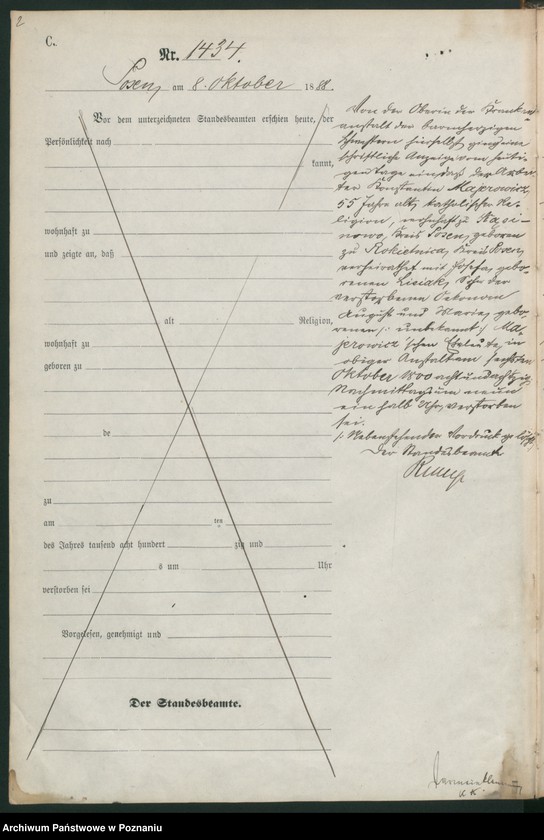 2
C.
Nr. 1434.
Posen, am 8. Oktober 1888.
Vor dem unterzeichneten Standesbeamten erschien heute, der
Persönlichkeit nach
kannt,
wohnhaft zu
und zeigte an, daß
alt Religion,
wohnhaft zu
geboren zu
de
zu
am ten
des Jahres tausend acht hundert zig und
s um Uhr
verstorben sei
Vorgelesen, genehmigt und
Der Standesbeamte.
Von der Oberin der Kranken-
anstalt der barmherzigen
Schwestern hierselbst ging eine
schriftliche Anzeige vom heuti-
gen Tage ein, daß der Arbei-
ter Konstantin Majerowicz,
55 Jahre alt, katholischer Re-
ligion, wohnhaft zu
Kreis Posen, geboren
zu Rokietnica, Kreis Posen,
verheirathet mit Josefa, gebo-
renen Lisiak, Sohn der
verstorbenen Oekonom
August und Maria, gebo-
renen /: unbekannt :/ Ma-
jerowicz'schen Eheleute, in
obiger Anstalt am sechsten
Oktober 1800 achtundachtzig
Nachmittags um neun
einhalb Uhr, verstorben
sei.
/: Nebenstehender Vordruck gelöscht
Der Standesbeamte
Archiwum Państwowe w Poznaniu